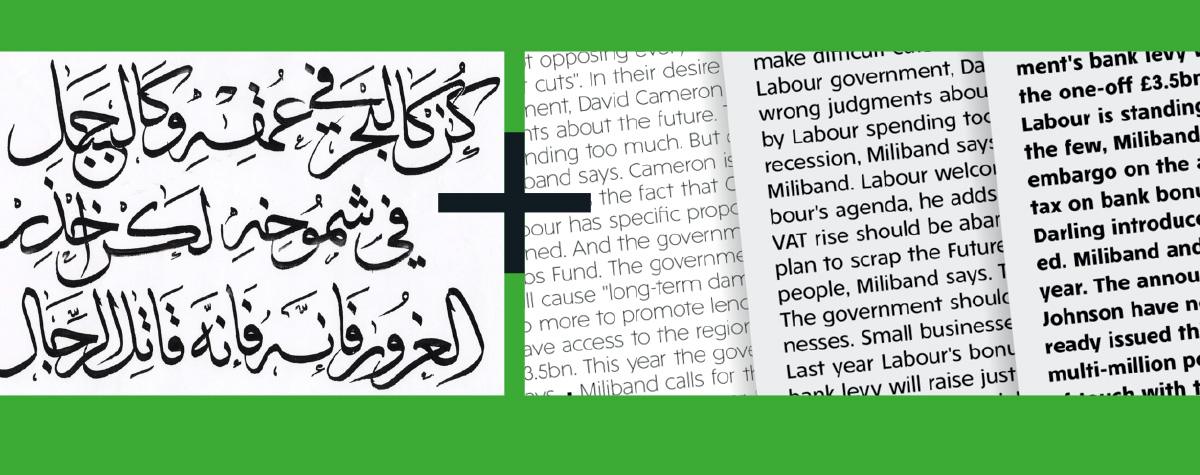 كُن كالبحر في عمقه وكالجبل
في شموخه لكن حاذر
الغرور فإنه فإنه قاتل الرجال
opposing
cuts". In their desire
David Cameron
about the future.
too much. But
says. Cameron
the fact that
has specific
And the
Fund. The
cause "long-term
more to promote
access to the
3.5bn. This year the
Miliband calls for
make difficult
Labour government,
wrong judgments
by Labour spending
recession, Miliband
Miliband. Labour
bour's agenda, he adds
VAT rise should be
plan to scrap the Future
people, Miliband says.
The government
nesses. Small
Last year Labour's
bank levy will raise just
ment's bank levy
the one-off £3.5bn
Labour is standing
the few, Miliband
embargo on the
tax on bank
Darling
ed. Miliband and
year. The
Johnson have
ready issued
multi-million
touch with